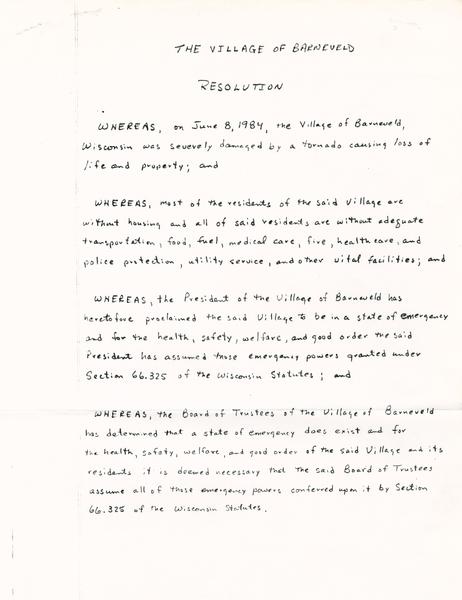 THE VILLAGE OF BARNEVELD
RESOLUTION
WHEREAS, on June 8, 1984, the Village of Barneveld,
Wisconsin was severely damaged by a tornado causing loss of
life and property; and
WHEREAS, most of the residents of the said Village are
without housing and all of said residents are without adequate
transportation, food, fuel, medical care, fire, health care, and
police protection, utility service, and other vital facilities; and
WHEREAS, the President of the Village of Barneveld has
heretofore proclaimed the said Village to be in a state of emergency
and for the health, safety, welfare, and good order the said
President has assumed those emergency powers granted under
Section 66.325 of the Wisconsin Statutes; and
WHEREAS, the Board of Trustees of the Village of Barneveld
has determined that a state of emergency does exist and for
the health, safety, welfare, and good order of the said Village and its
residents it is deemed necessary that the said Board of Trustees
assume all of those emergency powers conferred upon it by Section
66.325 of the Wisconsin Statutes.